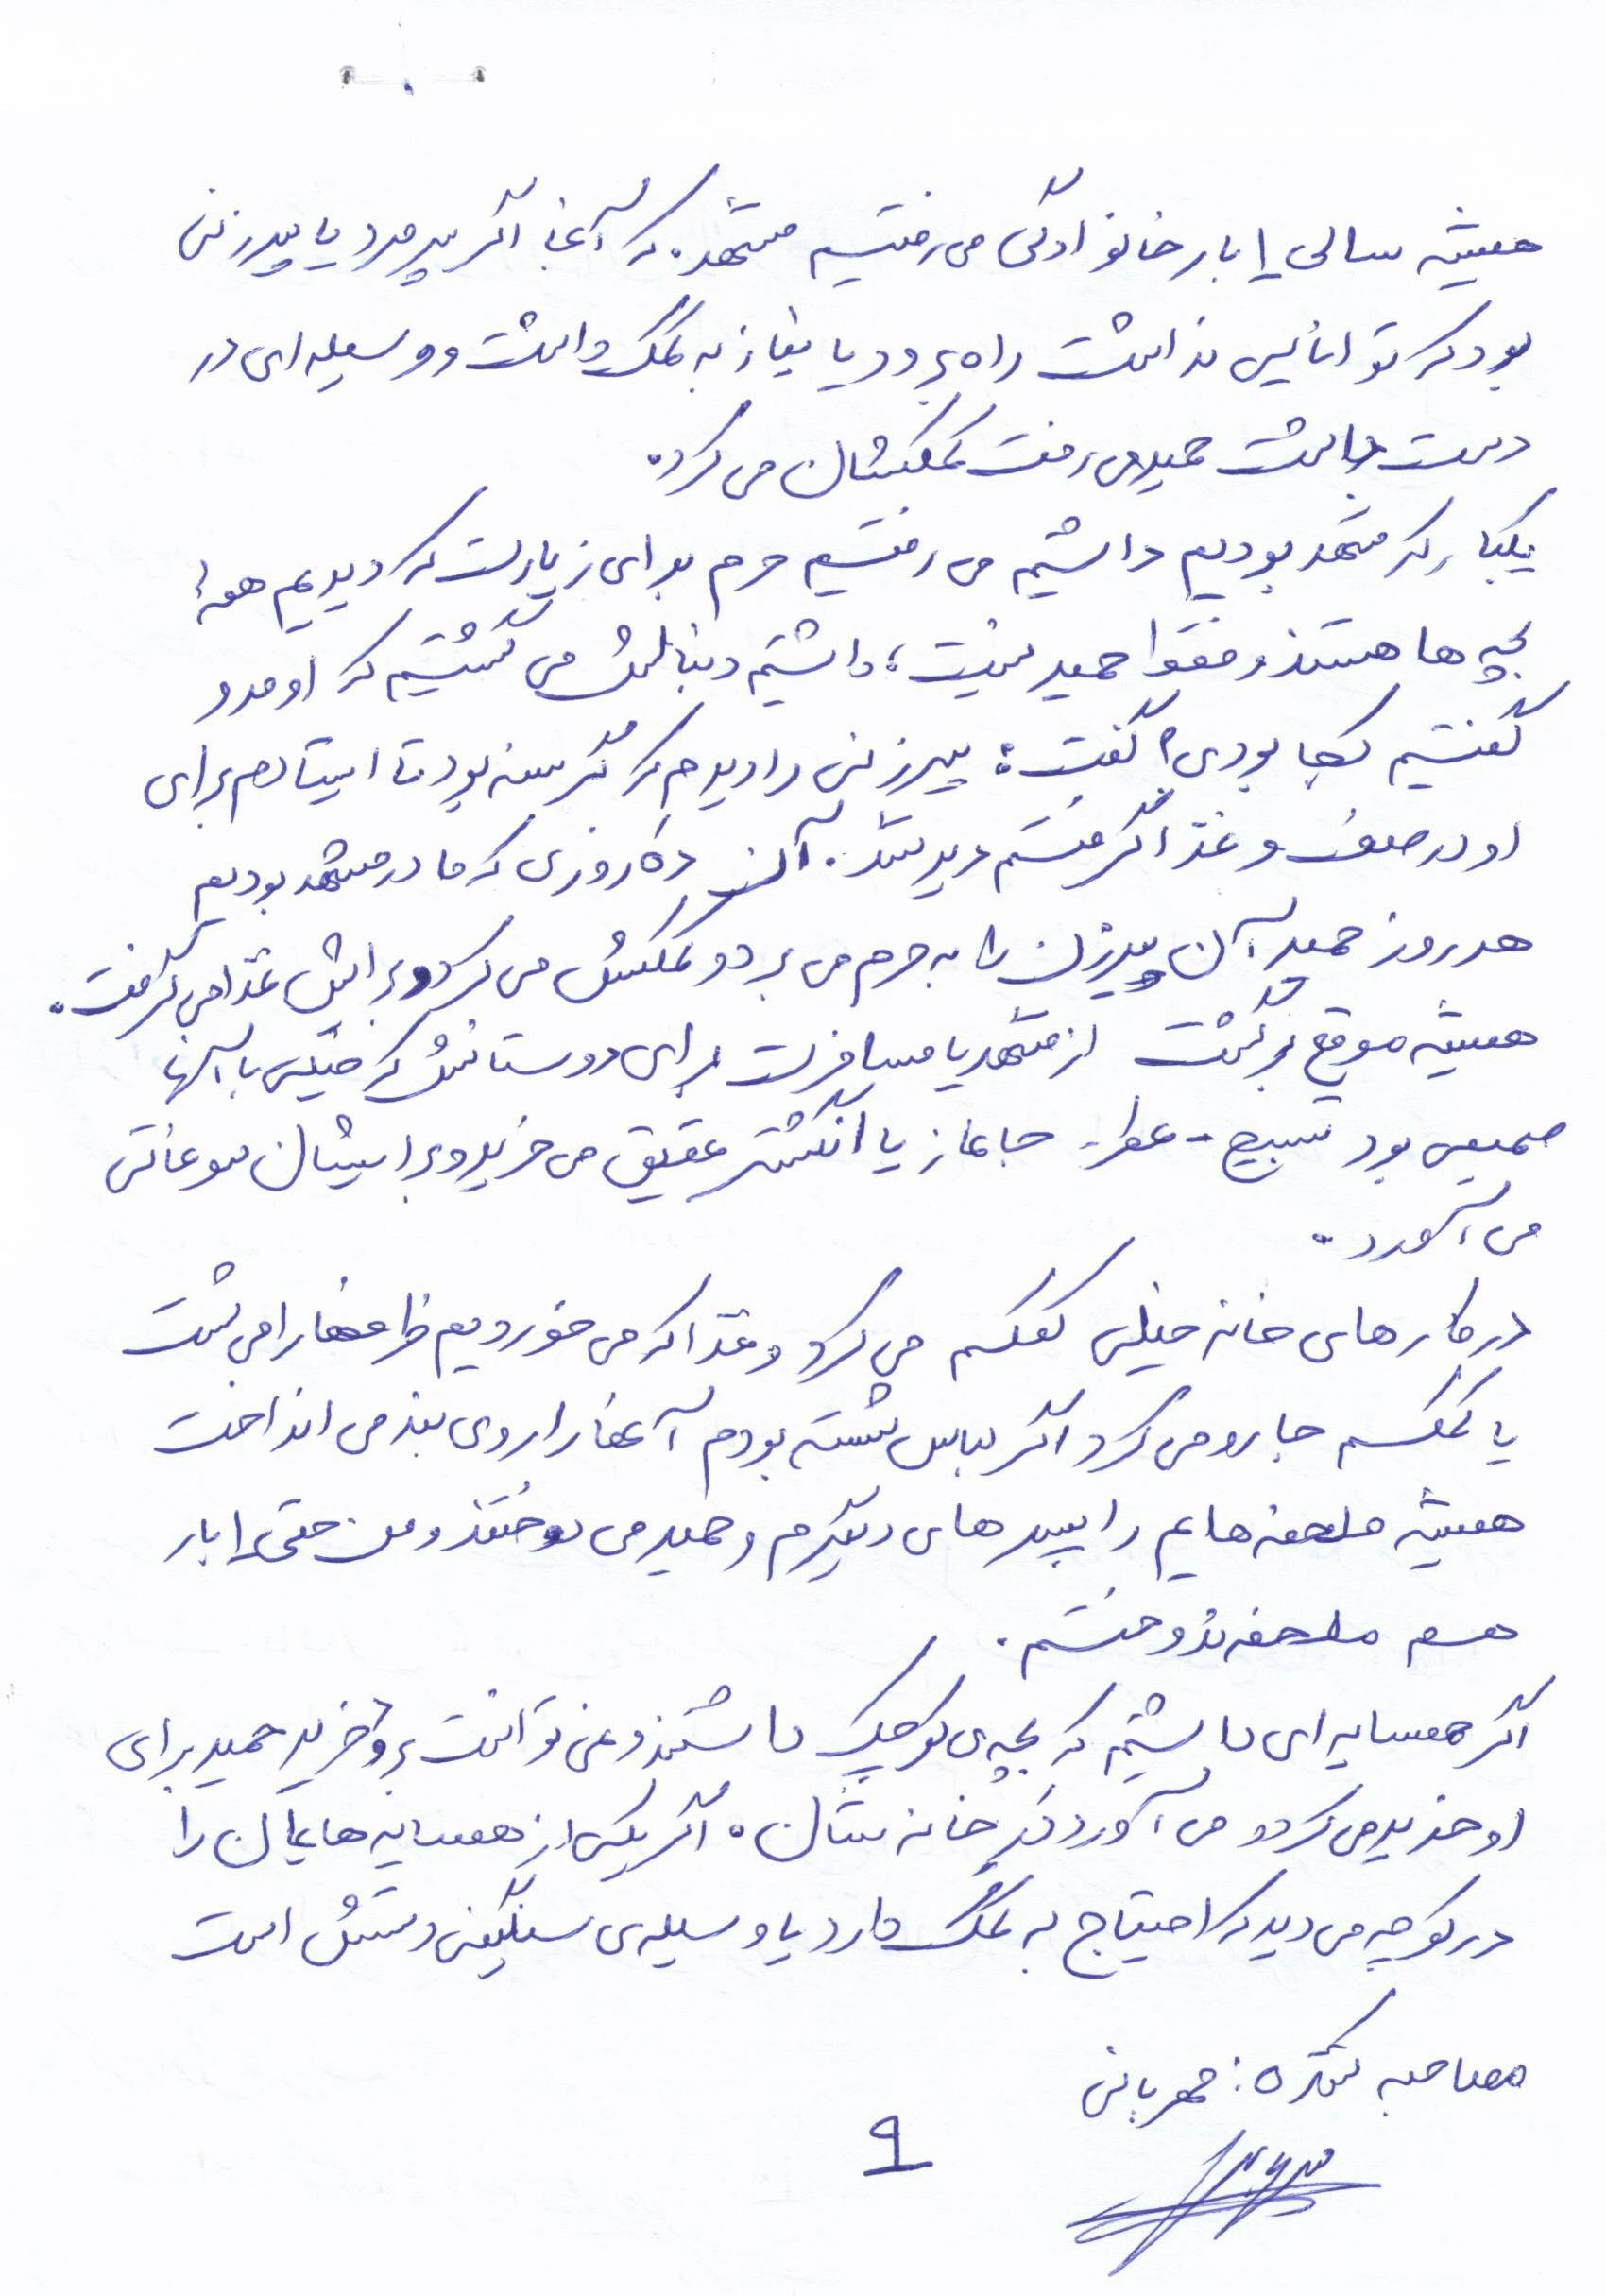 همیشه سالی ۱ بار خانوادگی می رفتیم مشهد. که آنجا اگر پیرمرد یا پیرزنی
بود که توانایی نداشت راه برود یا نیاز به کمک داشت و وسیله ای در
دست داشت حمید می رفت کمکشان می کرد.
یکبار که مشهد بودیم داشتیم می رفتیم حرم برای زیارت که دیدیم همهٔ
بچه ها هستند و فقط حمید نیست، داشتیم دنبالش می گشتیم که اومد و
گفتیم کجا بودی؟ گفت: پیرزنی را دیدم که گرسنه بود تا ایستادم برای
او در صف و غذا گرفتم دیر شد. آن ده روزی که ما در مشهد بودیم
هر روز حمید آن پیرزن را به حرم می برد و کمکش می کرد و برایش غذا می گرفت.
همیشه موقع برگشت از مشهد یا مسافرت برای دوستانش که خیلی با آنها
صمیمی بود تسبیح - عطر - جانماز یا انگشتر عقیق می خرید و برایشان سوغاتی
می آورد.
در کارهای خانه خیلی کمکم می کرد و غذا که می خوردیم ظرفها را می شست
یا کمکم جارو می کرد اگر لباس شسته بودم آنها را روی بند می انداخت
همیشه ملحفه هایم را پسرهای دیگرم و حمید می دوختند و من حتی ۱ بار
هم ملحفه ندوختم.
اگر همسایه ای داشتیم که بچه ی کوچک داشتند و نمی توانست برود خرید حمید برای
او خرید می کرد و می آورد در خانه شان. اگر یکی از همسایه هایمان را
در کوچه می دید که احتیاج به کمک دارد یا وسیله ی سنگینی دستش است
مصاحبه شونده: مهربانی
۹